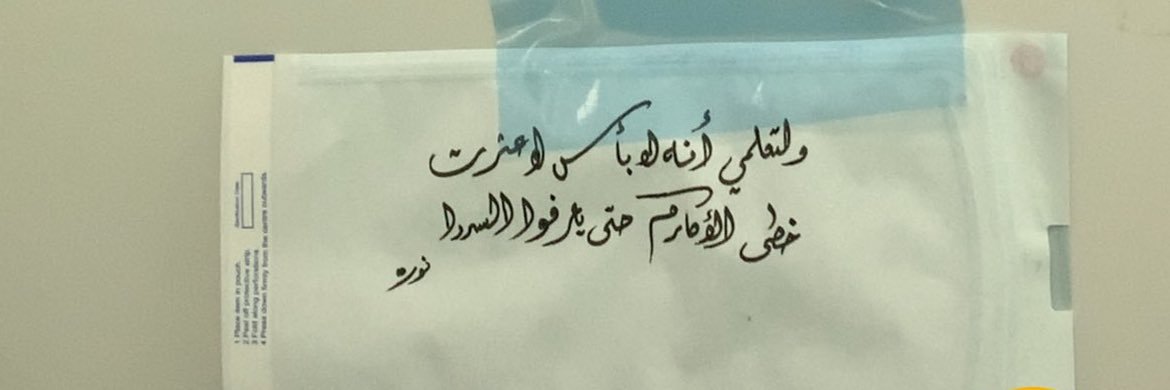 ولتعلمي أنه لا بأس لو عثرت
خطى الأكارم حتى يعرفوا السددا
نوره
1 Place item in pouch.
2 Peel off protective strip.
3 Fold along perforations.
4 Press down firmly from the centre outwards.